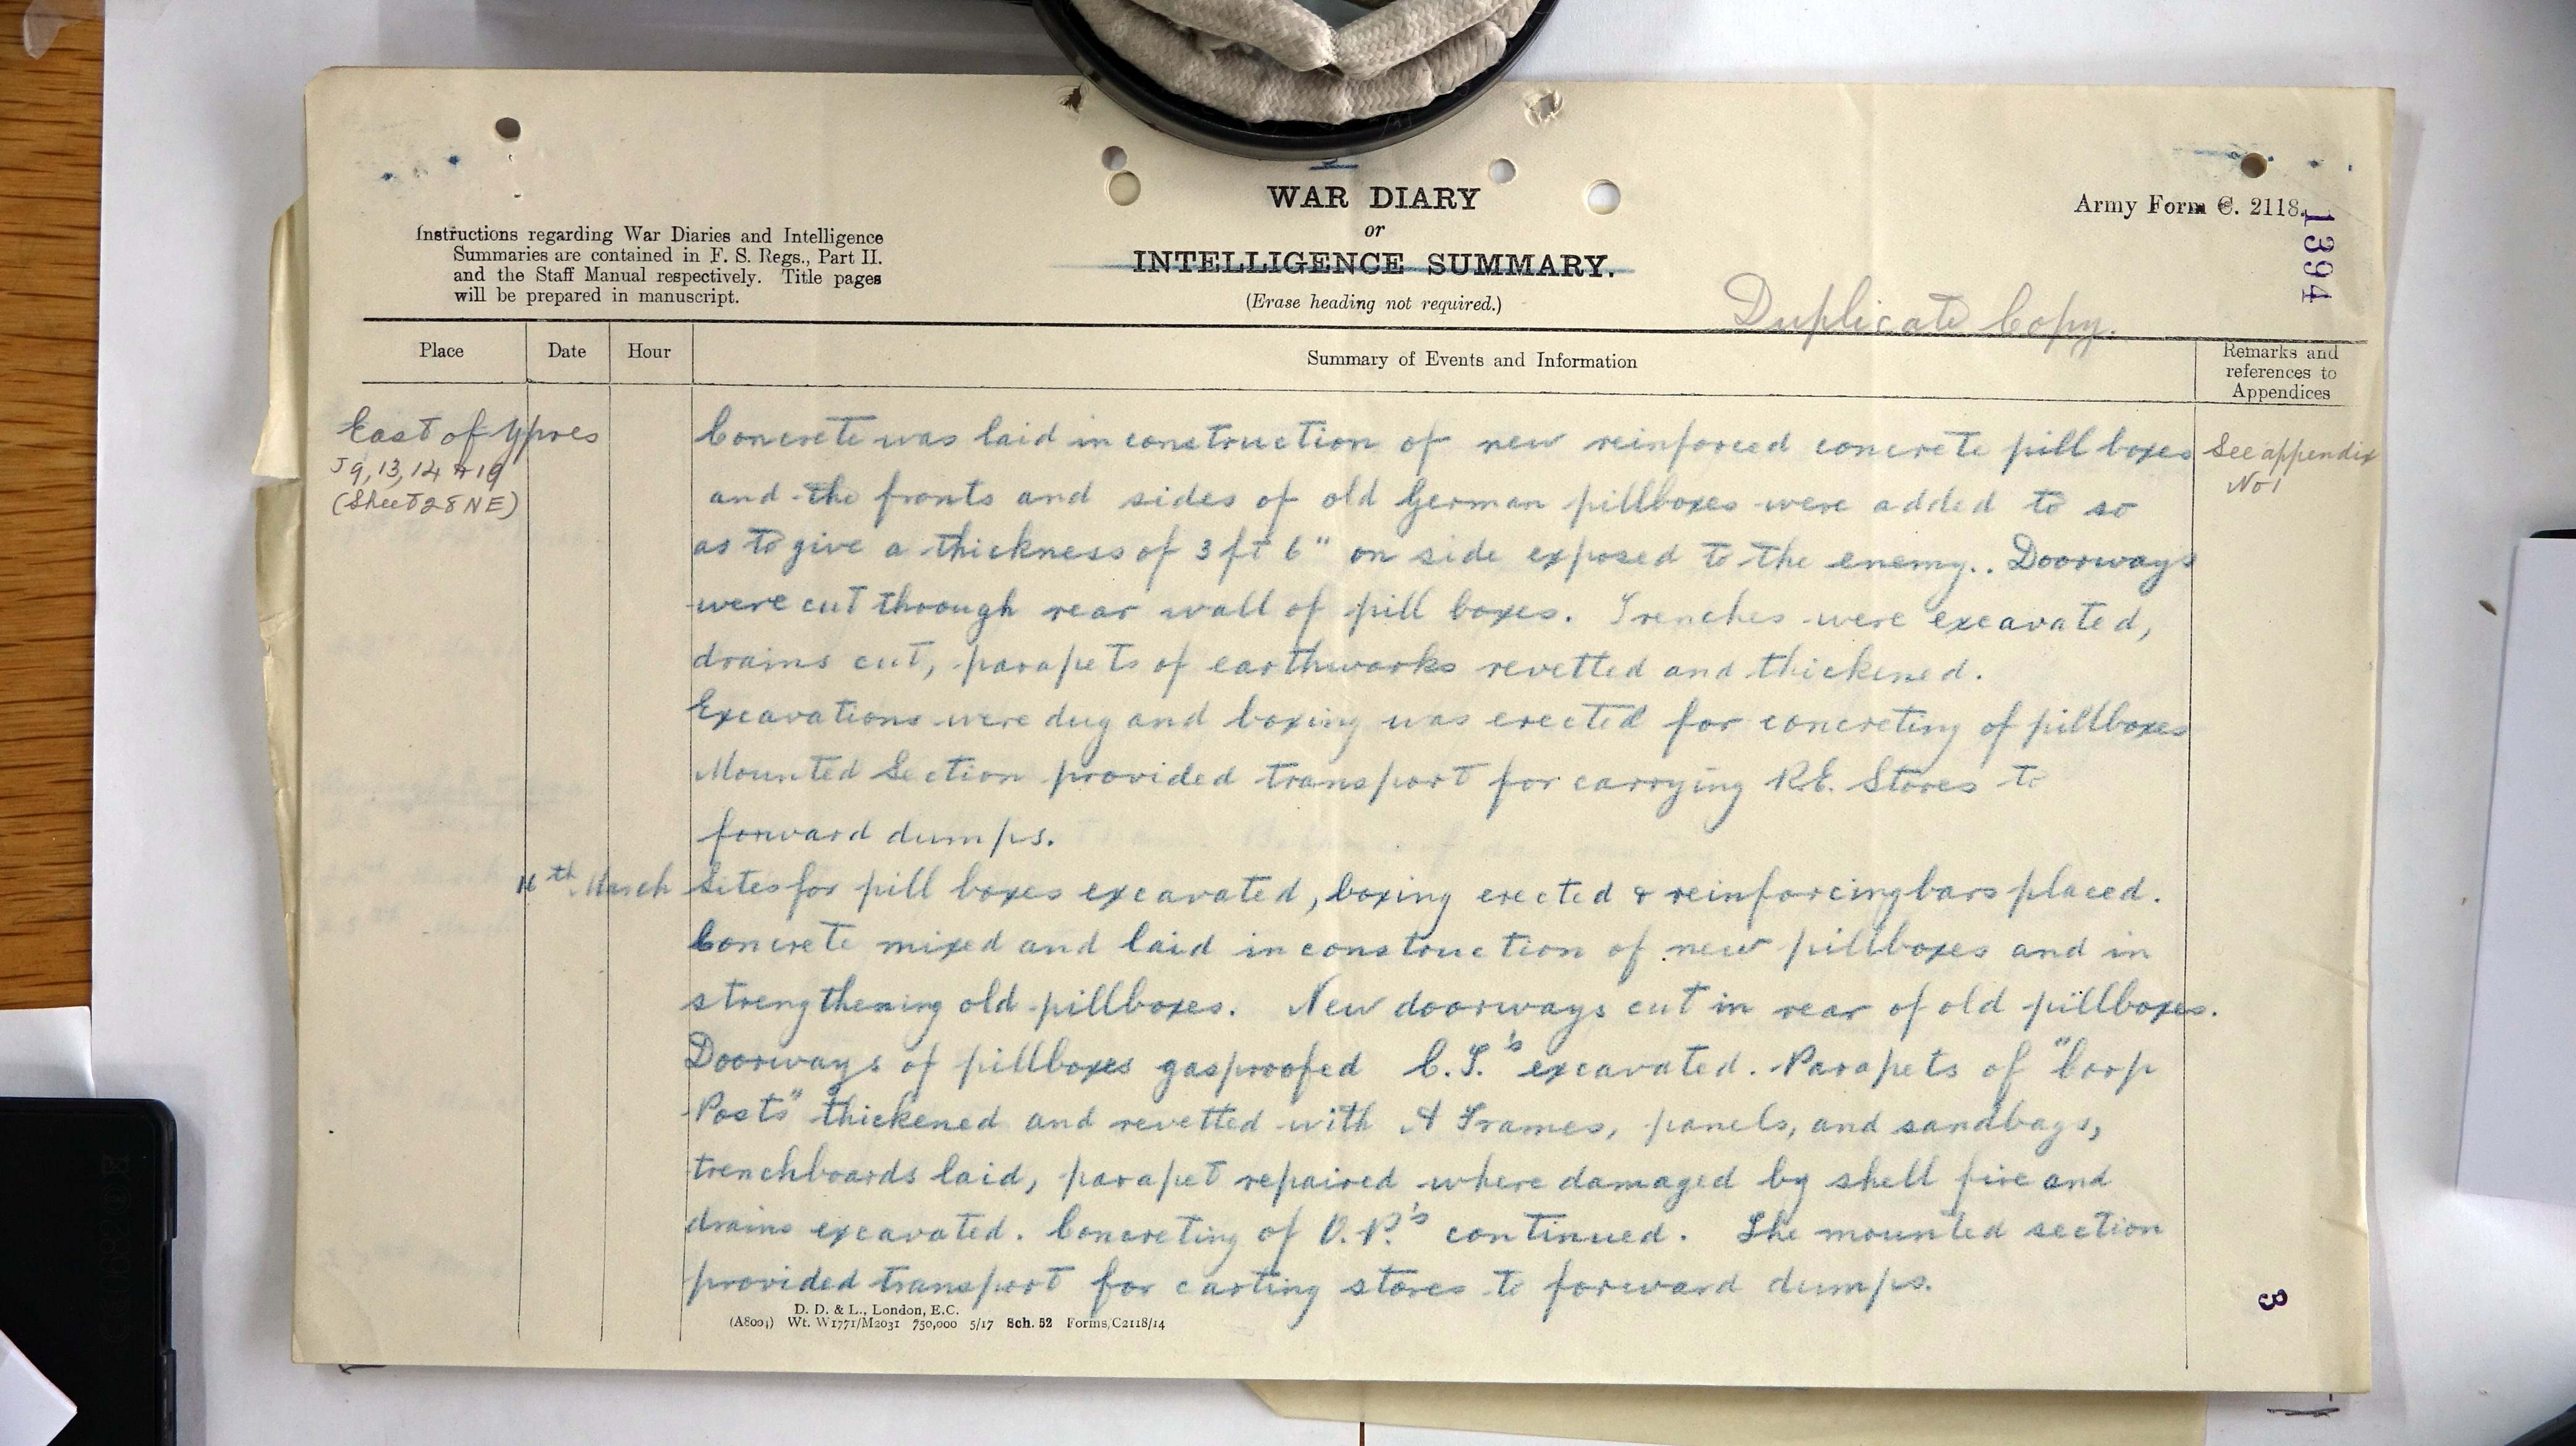 WAR DIARY
or
INTELLIGENCE SUMMARY.
(Erase heading not required.)
Instructions regarding War Diaries and Intelligence
Summaries are contained in F. S. Regs., Part II.
and the Staff Manual respectively. Title pages
will be prepared in manuscript.
Army Form C. 2118.
1394
Duplicate Copy.
Place
Date
Hour
Summary of Events and Information
Remarks and
references to
Appendices
East of Ypres
J 9, 13, 14 & 19
(Sheet 28 NE)
See appendix
No 1
Concrete was laid in construction of new reinforced concrete pill boxes
and the fronts and sides of old German pillboxes were added to so
as to give a thickness of 3 ft 6" on side exposed to the enemy.. Doorways
were cut through rear wall of pill boxes. Trenches were excavated,
drains cut, parapets of earthworks revetted and thickened.
Excavations were dug and boxing was erected for concreting of pillboxes
Mounted Section provided transport for carrying R.E. Stores to
forward dumps.
March Sites for pill boxes excavated, boxing erected & reinforcing bars placed.
Concrete mixed and laid in construction of new pillboxes and in
strengthening old pillboxes. New doorways cut in rear of old pillboxes.
Doorways of pillboxes gasproofed C.T.'s excavated. Parapets of "Loop
Posts" thickened and revetted with A Frames, panels, and sandbags,
trenchboards laid, parapet repaired where damaged by shell fire and
drains excavated. Concreting of O.P.'s continued. The mounted section
provided transport for carting stores to forward dumps.
D. D. & L., London, E.C.
(A8004) Wt. W1771/M2031 750,000 5/17 Sch. 52 Forms,C2118/14
3